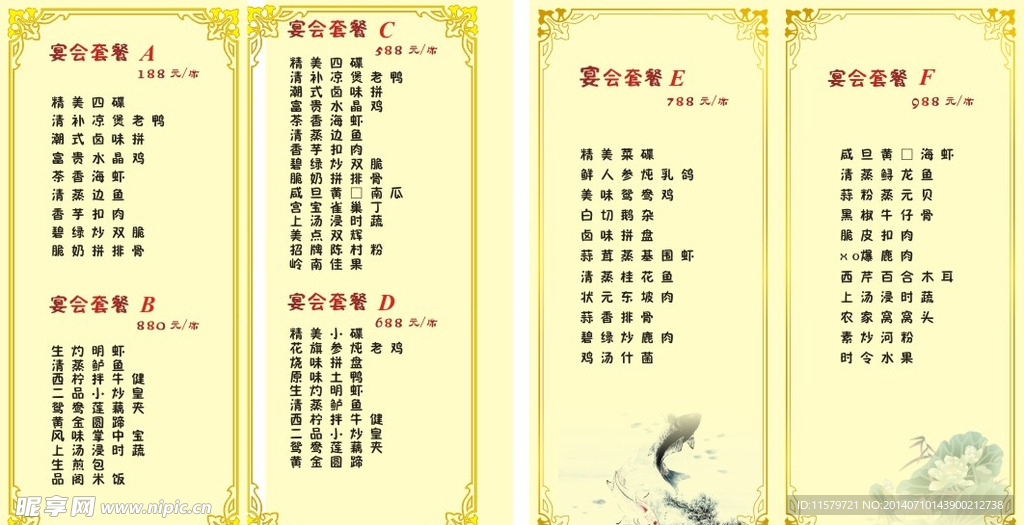 宴会套餐 A
188 元/席
精美四碟
清补凉煲老鸭
潮式卤味拼
富贵水晶鸡
茶香海虾
清蒸边鱼
香芋扣肉
碧绿炒双脆
脆奶拼排骨
宴会套餐 B
880 元/席
生灼明虾
清蒸鲈鱼
西柠拌牛健
二品小炒皇
鸳鸯莲藕夹
黄金圆蹄
风味掌中宝
上汤浸时蔬
生煎包
品阁米饭
宴会套餐 C
588 元/席
精美四碟
清补凉煲老鸭
潮式卤味拼
富贵水晶鸡
茶香海虾
清蒸边鱼
香芋扣肉
碧绿炒双脆
脆奶拼排骨
咸旦黄□南瓜
宫宝雀巢丁
上汤浸时蔬
美点双辉
招牌陈村粉
岭南佳果
宴会套餐 D
688 元/席
精美小碟
花旗参炖老鸡
烧味拼盘
原味土鸭
生灼明虾
清蒸鲈鱼
西柠拌牛健
二品小炒皇
鸳鸯莲藕夹
黄金圆蹄
宴会套餐 E
788 元/席
精美菜碟
鲜人参炖乳鸽
美味鸳鸯鸡
白切鹅杂
卤味拼盘
蒜茸蒸基围虾
清蒸桂花鱼
状元东坡肉
蒜香排骨
碧绿炒鹿肉
鸡汤什菌
宴会套餐 F
988 元/席
咸旦黄□海虾
清蒸鲟龙鱼
蒜粉蒸元贝
黑椒牛仔骨
脆皮扣肉
xo爆鹿肉
西芹百合木耳
上汤浸时蔬
农家窝窝头
素炒河粉
时令水果
昵享网 www.nipic.cn
ID:11579721 NO:20140710143900212738